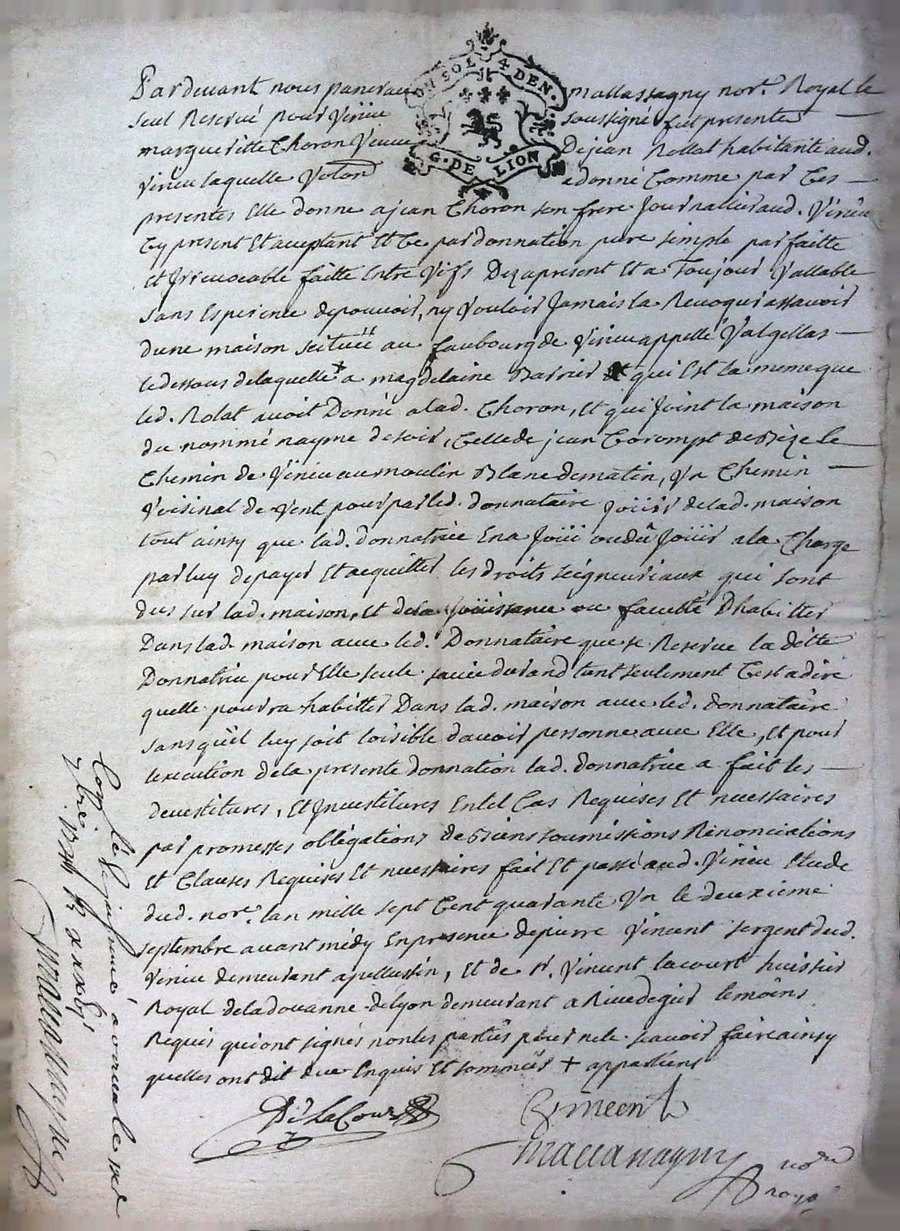 UN SOL 4 DEN.
G. DE LION
Pardevant nous mallassagny nore. Royal le
seul Reservé pour Virieu soussigné fut presente
margueritte Choron Veuve De jean Rollat habitante aud.
Virieu laquelle a donné Comme par Ces
presentes Elle donne a jean Choron son frere Journallier aud. Virieu
Cy present Et aceptant Et Ce par donnation pure simple parfaitte
Et Irrevocable faitte Entre Vifs Dez apresent Et a Toujour Vallable
sans Esperence de pouvoir, ny Vouloir Jamais la Revoquer assavoir
dune maison scituée au faubourg de Virieu appellé Valgellas
le dessous de laquelle + a magdelaine qui Est la meme que
led. Rolat avoit Donné a lad. Choron, Et qui Joint la maison
du nommé nayme de soir, Celle de jean Corompt de Bize le
Chemin de Virieu au moulin Blanc de matin, Un Chemin
Voisinal de Vent pour par led. donnataire joüir de lad. maison
tout ainsy que lad. donnatrice En a Joüi ou dû Joüir a la Charge
par luy de payer Et acquitter les droits seigneuriaux qui sont
dus sur lad. maison, Et de la joüissance ou faculté Dhabitter
Dans lad. maison avec led. Donnataire que se Reserve la ditte
Donnatrice pour Elle seule sa vie durand tant seulement Cest a dire
quelle pourra habitter Dans lad. maison avec led. donnataire
sans quil luy soit loisible davoir personne avec Elle, Et pour
lexecution de la presente donnation lad. donnatrice a fait les
devestitures, Et Investitures En tel Cas Requises Et necessaires
par promesses obligations de Biens soumissions Renonciations
Et Clauses Requises Et necessaires fait Et passé aud. Virieu Etude
dud. nore. lan mille sept Cent quarante Un le deuxieme
septembre avant midy En presence de pierre Vincent sergent dud.
Virieu demeurant a pellussin, Et de sr. Vincent lacourt huissier
Royal de la doüanne de Lyon demeurant a Rivedegier temoins
Requis qui ont signés non les parties pour ne le sçavoir faire ainsy
quelles ont dit de ce Enquis Et sommées + appartient
Lacour
Vincent
nore
royal